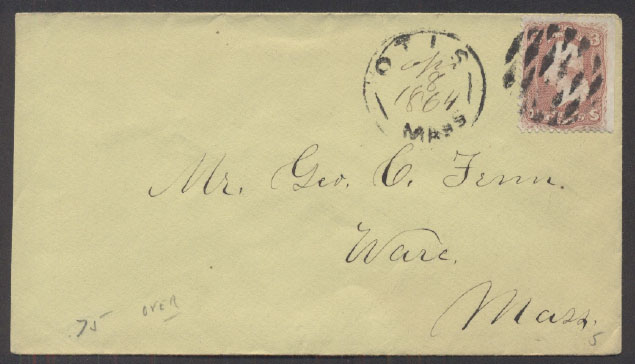 OTIS
8
1864
MASS
3
S
Mr. Geo. C. Fenn.
Ware.
Mass.
.75
OVER
5